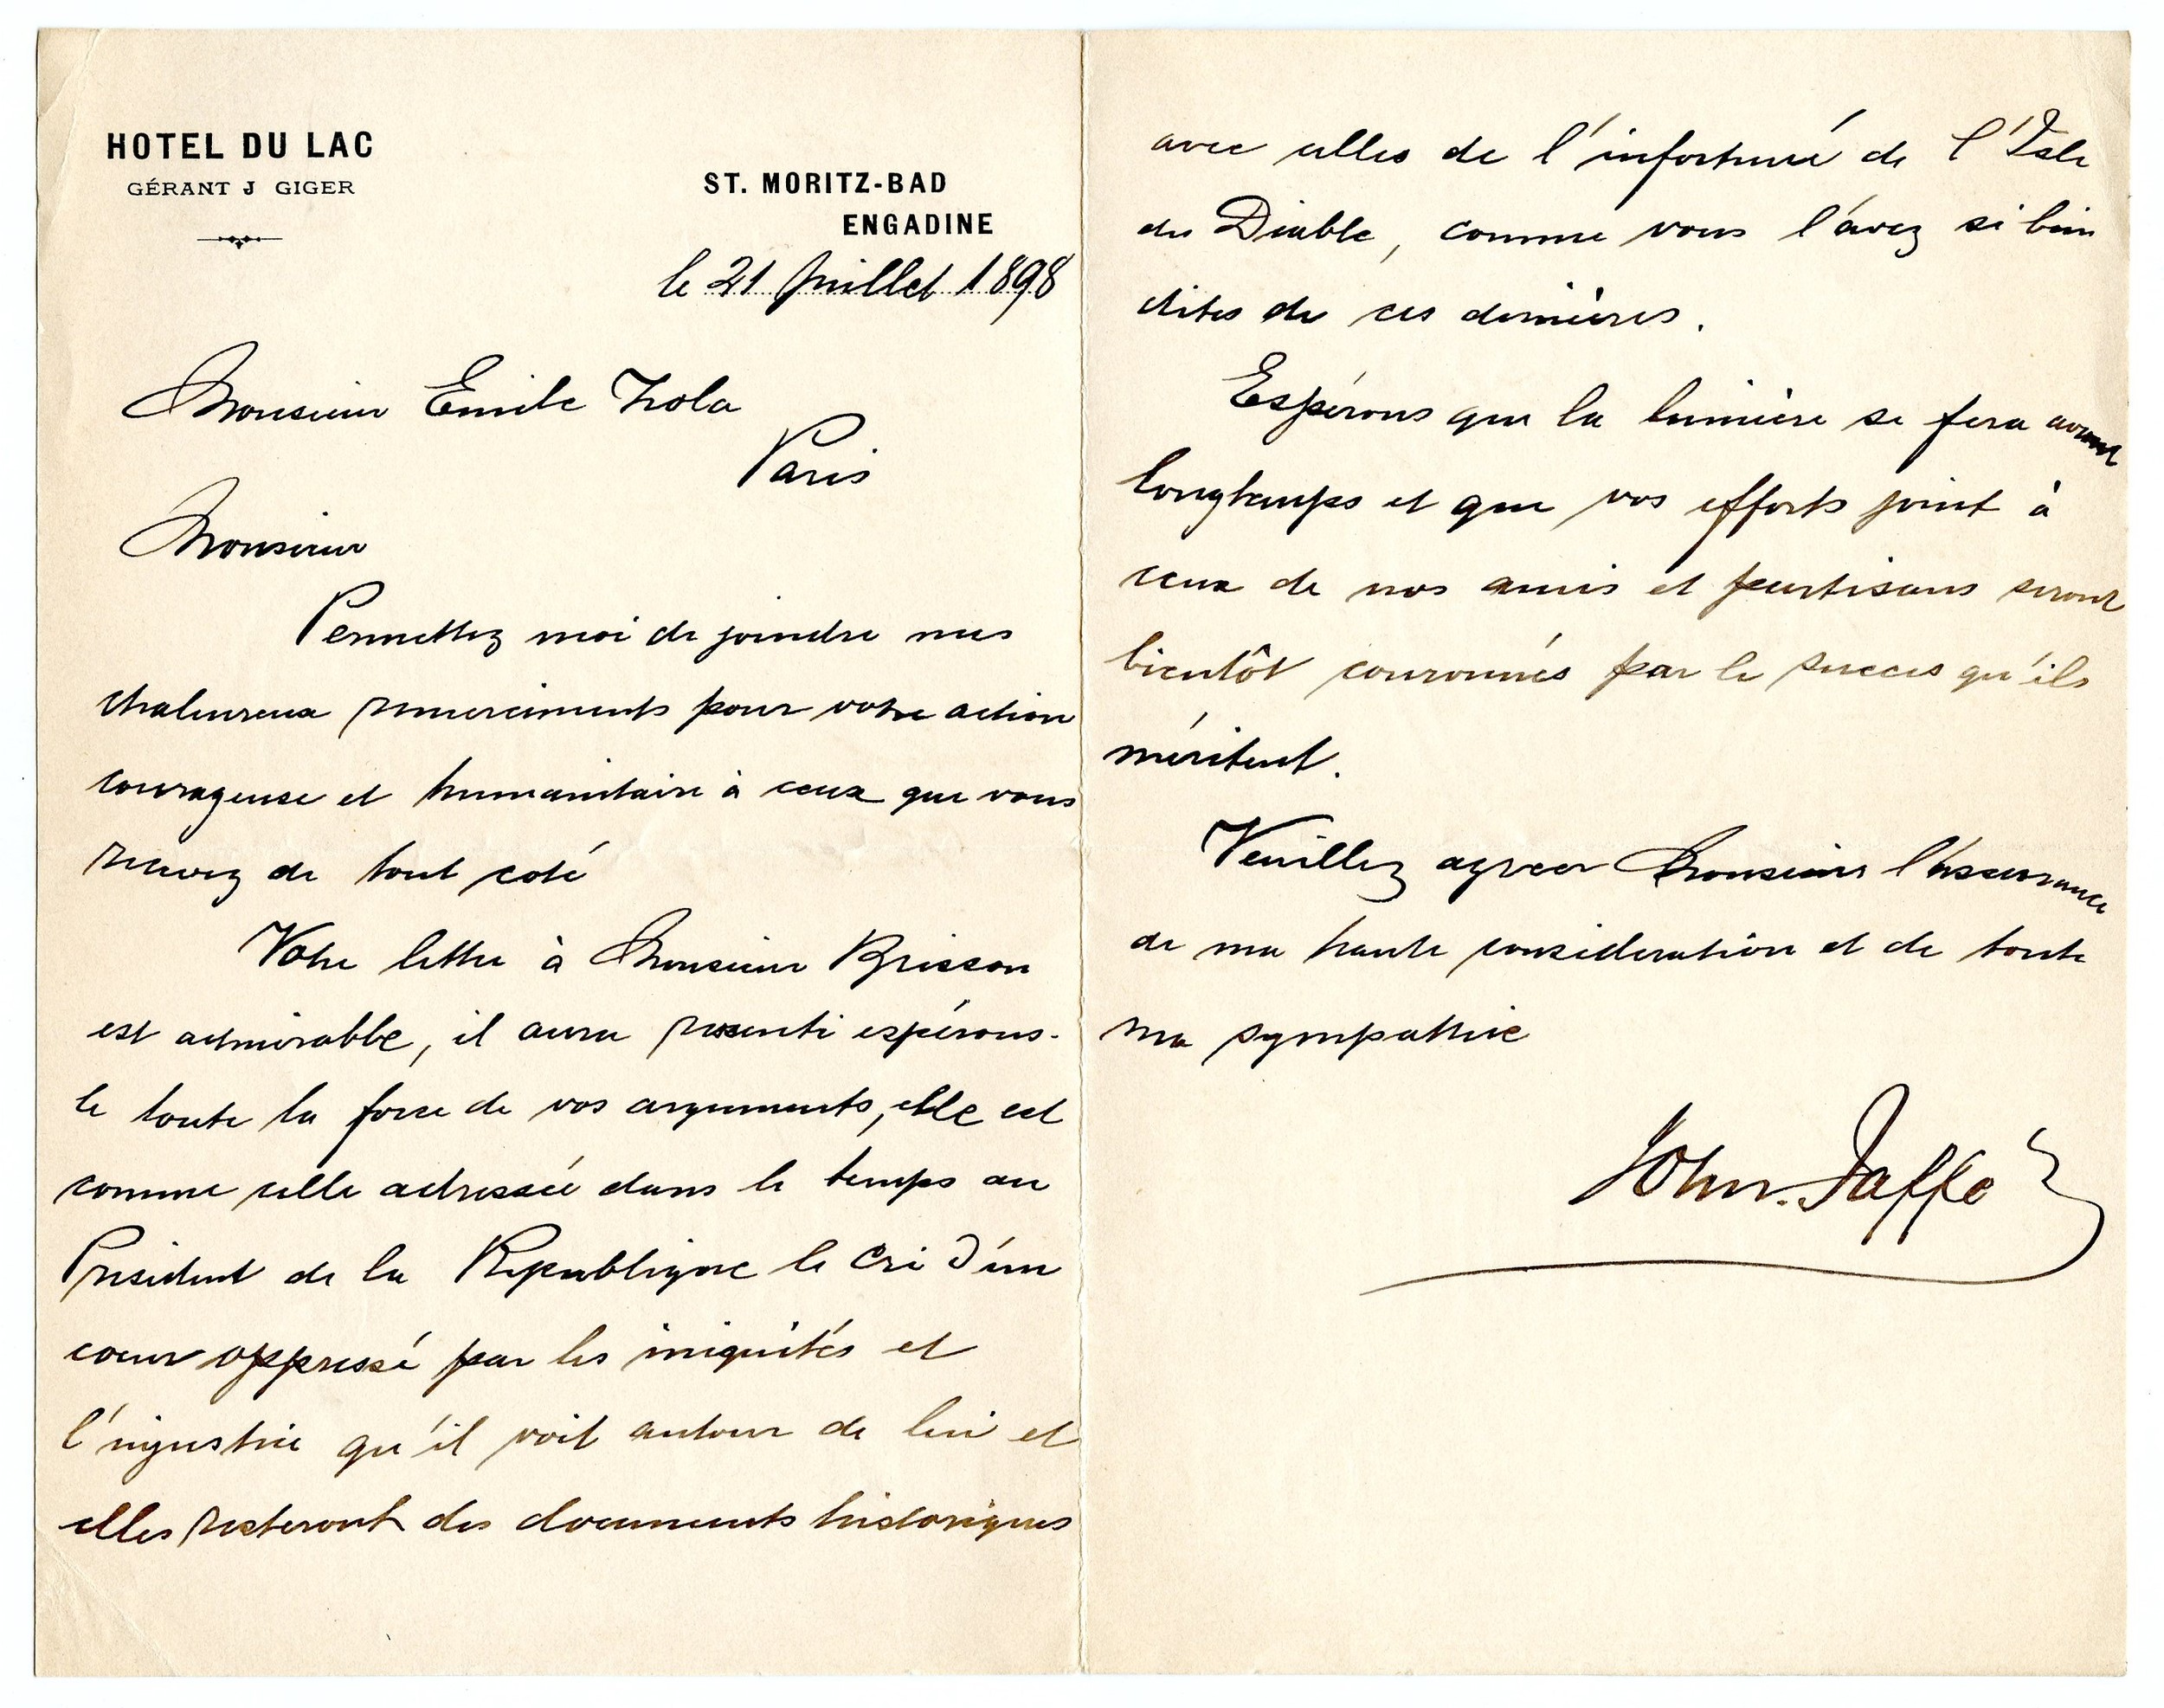 HOTEL DU LAC
GÉRANT J GIGER
ST. MORITZ-BAD
ENGADINE
le 21 Juillet 1898
Monsieur Emile Zola
Paris
Monsieur
Permettez moi de joindre mes
chaleureux remerciments pour votre action
courageuse et humanitaire à ceux que vous
recevez de tout coté
Votre lettre à Monsieur Brisson
est admirable, il aura ressenti espérons-
le toute la force de vos arguments, elle est
comme celle adressée dans le temps au
President de la Republique le cri d'un
coeur oppressé par les iniquités et
l'injustice qu'il voit autour de lui et
elles resteront des documents historiques
avec celles de l'infortuné de l'Isle
du Diable, comme vous l'avez si bien
dites de ces dernières.
Espérons que la lumière se fera avant
longtemps et que vos efforts joint à
ceux de nos amis et partisans seront
bientôt couronnés par le succes qu'ils
méritent.
Veuillez agreer Monsieur l'assurance
de ma haute consideration et de toute
ma sympathie
John. Jaffé